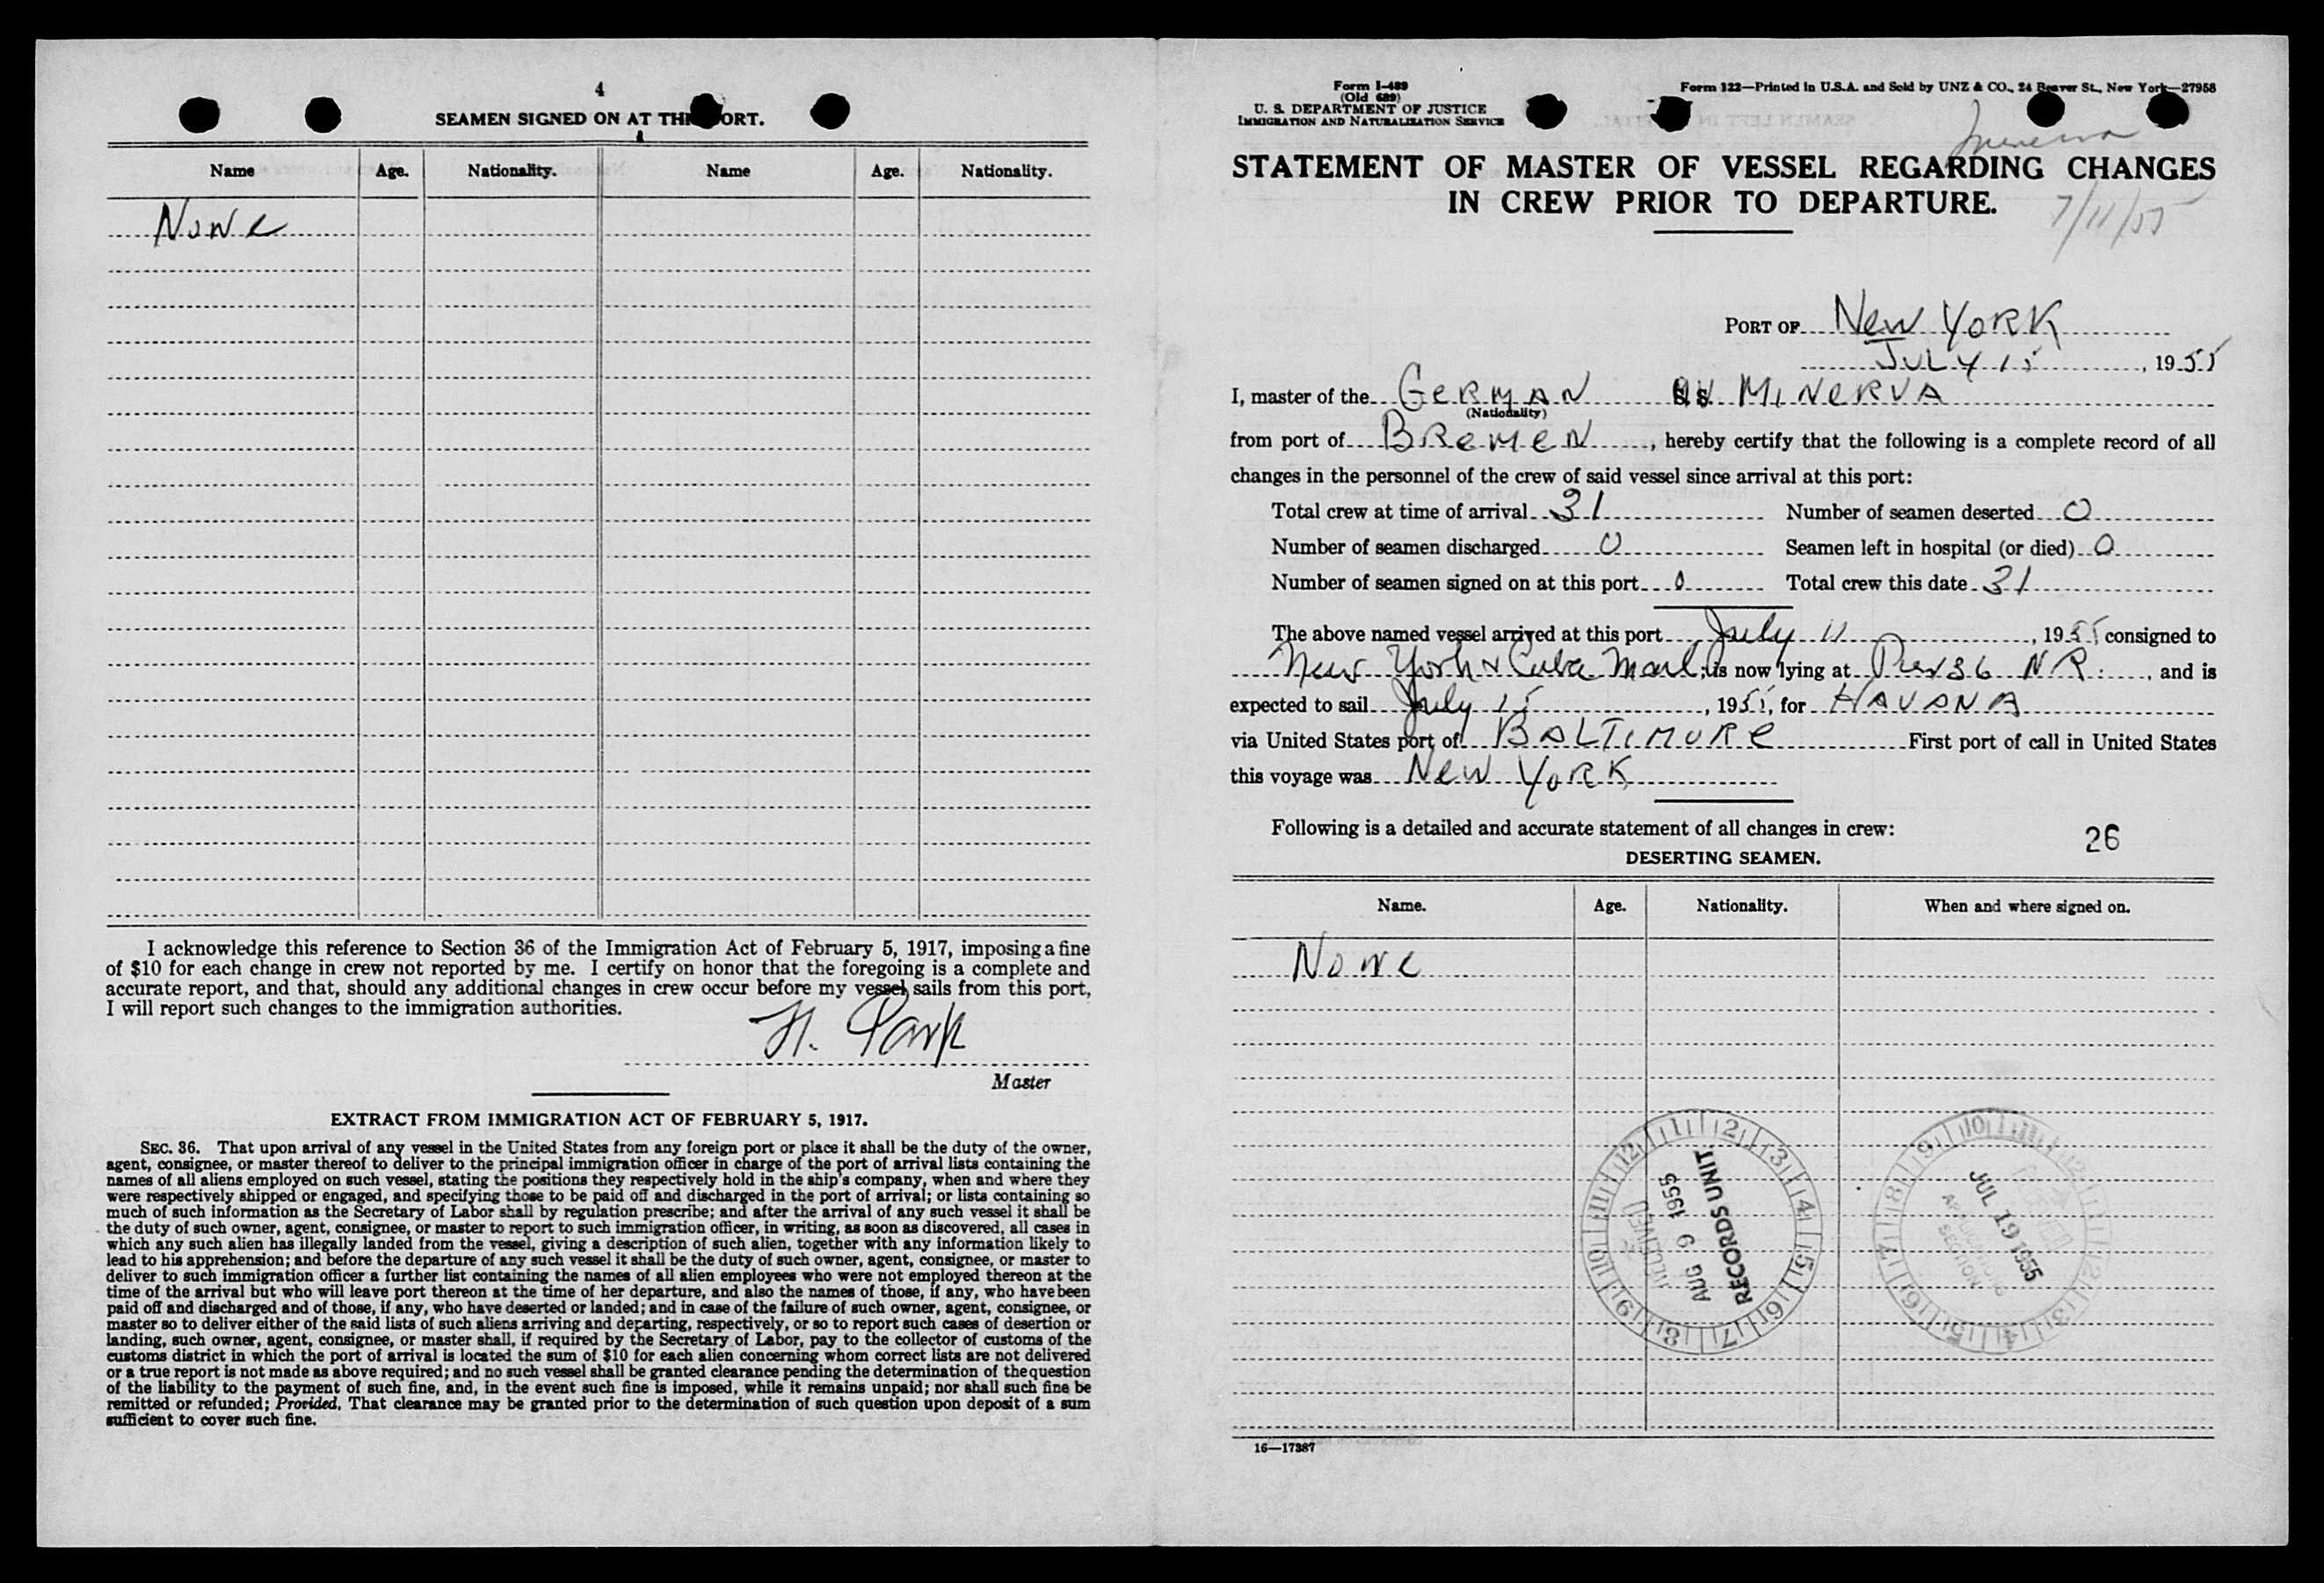 4
SEAMEN SIGNED ON AT THIS PORT.
Name Age. Nationality. Name Age. Nationality.
None
I acknowledge this reference to Section 36 of the Immigration Act of February 5, 1917, imposing a fine
of $10 for each change in crew not reported by me. I certify on honor that the foregoing is a complete and
accurate report, and that, should any additional changes in crew occur before my vessel sails from this port,
I will report such changes to the immigration authorities.
Master
EXTRACT FROM IMMIGRATION ACT OF FEBRUARY 5, 1917.
SEC. 36. That upon arrival of any vessel in the United States from any foreign port or place it shall be the duty of the owner,
agent, consignee, or master thereof to deliver to the principal immigration officer in charge of the port of arrival lists containing the
names of all aliens employed on such vessel, stating the positions they respectively hold in the ship's company, when and where they
were respectively shipped or engaged, and specifying those to be paid off and discharged in the port of arrival; or lists containing so
much of such information as the Secretary of Labor shall by regulation prescribe; and after the arrival of any such vessel it shall be
the duty of such owner, agent, consignee, or master to report to such immigration officer, in writing, as soon as discovered, all cases in
which any such alien has illegally landed from the vessel, giving a description of such alien, together with any information likely to
lead to his apprehension; and before the departure of any such vessel it shall be the duty of such owner, agent, consignee, or master to
deliver to such immigration officer a further list containing the names of all alien employees who were not employed thereon at the
time of the arrival but who will leave port thereon at the time of her departure, and also the names of those, if any, who have been
paid off and discharged and of those, if any, who have deserted or landed; and in case of the failure of such owner, agent, consignee, or
master so to deliver either of the said lists of such aliens arriving and departing, respectively, or so to report such cases of desertion or
landing, such owner, agent, consignee, or master shall, if required by the Secretary of Labor, pay to the collector of customs of the
customs district in which the port of arrival is located the sum of $10 for each alien concerning whom correct lists are not delivered
or a true report is not made as above required; and no such vessel shall be granted clearance pending the determination of the question
of the liability to the payment of such fine, and, in the event such fine is imposed, while it remains unpaid; nor shall such fine be
remitted or refunded; Provided, That clearance may be granted prior to the determination of such question upon deposit of a sum
sufficient to cover such fine.
Form I-489
(Old 689)
U. S. DEPARTMENT OF JUSTICE
IMMIGRATION AND NATURALIZATION SERVICE
Form 122—Printed in U.S.A. and Sold by UNZ & CO., 24 Beaver St., New York—27958
Minerva
STATEMENT OF MASTER OF VESSEL REGARDING CHANGES
IN CREW PRIOR TO DEPARTURE.
7/11/55
PORT OF New York
July 15, 1955
I, master of the German MINERVA
(Nationality)
from port of Bremen, hereby certify that the following is a complete record of all
changes in the personnel of the crew of said vessel since arrival at this port:
Total crew at time of arrival 31 Number of seamen deserted 0
Number of seamen discharged 0 Seamen left in hospital (or died) 0
Number of seamen signed on at this port 0 Total crew this date 31
The above named vessel arrived at this port July 11, 1955 consigned to
New York & Cuba Mail; is now lying at Pier 36 NR., and is
expected to sail July 15, 1955, for HAVANA
via United States port of BALTIMORE First port of call in United States
this voyage was New York
Following is a detailed and accurate statement of all changes in crew:
26
DESERTING SEAMEN.
Name. Age. Nationality. When and where signed on.
None
RECEIVED
AUG 9 1955
RECORDS UNIT
JUL 19 1955
SECTION
16—17387